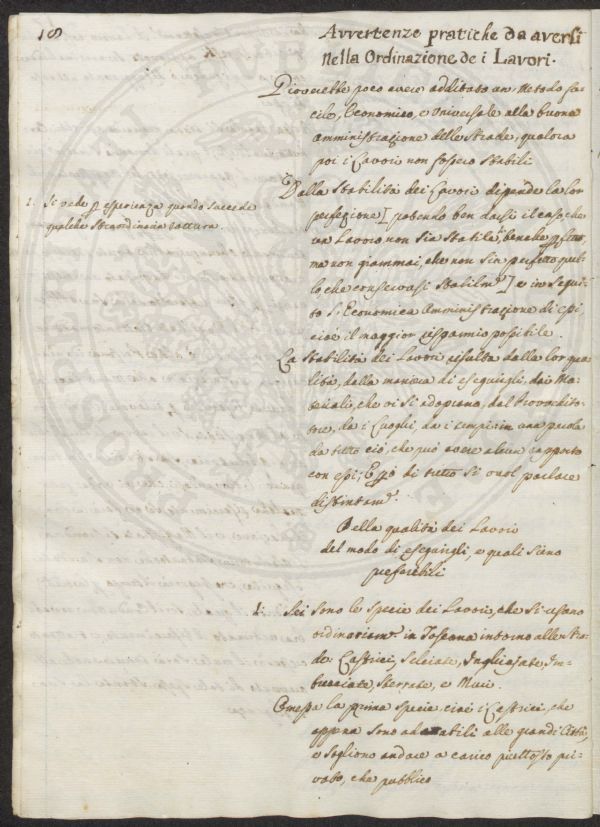 18
Avvertenze pratiche da aversi
nella Ordinazione de i Lavori.
Gioverebbe poco avere additato un Metodo fa-
cile, Economico, e Universale alla buona
amministrazione delle Strade, qualora
poi i Lavori non fossero stabili
Dalla Stabilità dei Lavori dipende la lor
perfezione [potendo ben darsi il caso, che
un Lavoro non sia stabile, benche
ma non giammai, che non sia perfetto quel-
lo che conservasi stabilm.e] e in segui-
to l'Economica Amministrazione di essi
cioè il maggior risparmio possibile.
1. Si vede p esperienza quando succede
qualche straordinaria rottura.
La Stabilità dei Lavori risulta dalla lor qua-
lità, dalla maniera di eseguirgli, dai Ma-
teriali, che vi si adoprano, dal Provvedito-
re, da i Luoghi, da i tempi: in una parola
da tutto ciò, che può avere alcun rapporto
con essi; E p.ò di tutto si vuol parlare
distintam.e
Della qualità dei Lavori
del modo di eseguirgli, e quali sieno
preferibili
1. Sei sono le specie dei Lavori, che si usano
ordinariam.e in Toscana intorno alle Stra-
de. Lastrici, Selciate, Inghiajate, Im-
brecciate, Sterrate, e Muri.
Omessa la prima specie cioè i Lastrici, che
appena sono adattabili alle grandi Città,
e sogliono andare a carico piuttosto pri-
vato, che pubblico